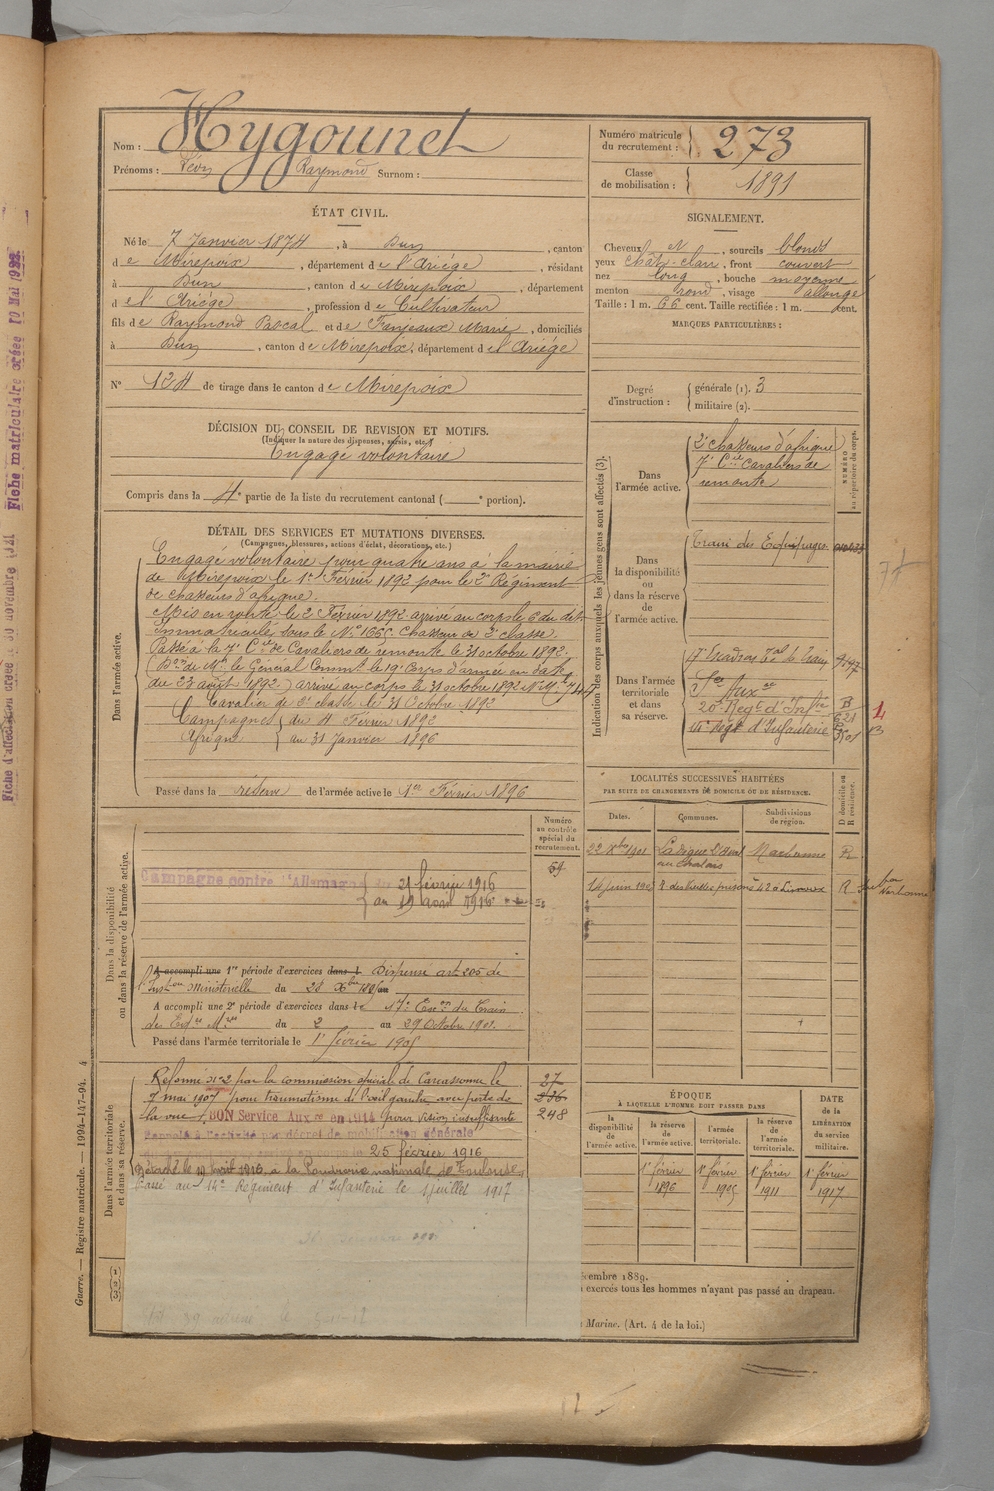 Nom : Hygounet
Prénoms : Léon Raymond Surnom :
Numéro matricule du recrutement : 273
Classe de mobilisation : 1891
ÉTAT CIVIL.
Né le 7 Janvier 1874, à Dun, canton
de Mirepoix, département de l'Ariège, résidant
à Dun, canton de Mirepoix, département
de l'Ariège, profession de Cultivateur
fils de Raymond Pascal et de Fanjeaux Marie, domiciliés
à Dun, canton de Mirepoix, département de l'Ariège
N° 134 de tirage dans le canton de Mirepoix
SIGNALEMENT.
Cheveux et sourcils blonds
yeux chat. clair, front couvert
nez long, bouche moyenne
menton rond, visage allongé
Taille : 1 m. 66 cent. Taille rectifiée : 1 m. cent.
MARQUES PARTICULIÈRES :
Degré d'instruction : générale (1). 3
militaire (2).
DÉCISION DU CONSEIL DE REVISION ET MOTIFS.
(Indiquer la nature des dispenses, sursis, etc.)
Engagé volontaire
Compris dans la 4e partie de la liste du recrutement cantonal ( e portion).
DÉTAIL DES SERVICES ET MUTATIONS DIVERSES.
(Campagnes, blessures, actions d'éclat, décorations, etc.)
Dans l'armée active.
Engagé volontaire pour quatre ans à la mairie
de Mirepoix le 1er Février 1892 pour le 2e Régiment
de chasseurs d'afrique.
Mis en route le 2 Février 1892 arrivé au corps le 6 du dit
Immatriculé sous le N° 1665 Chasseur de 2e classe.
Passé à la 7e Cie de Cavaliers de remonte le 31 octobre 1892.
(Don de Mr le Général Commt le 19e Corps d'armée en date
du 23 août 1892) arrivé au corps le 31 octobre 1892 N° M. 744
Cavalier de 2e classe le 31 Octobre 1892
Campagnes du 4 Février 1892
Afrique au 31 Janvier 1896
Passé dans la réserve de l'armée active le 1er Février 1896
Indication des corps auxquels les jeunes gens sont affectés (3).
NUMÉRO au répertoire du corps.
Dans l'armée active.
2e chasseurs d'afrique
7e Cie Cavaliers de
remonte
Dans la disponibilité ou dans la réserve de l'armée active.
Train des Equipages
Dans l'armée territoriale et dans sa réserve.
17e Escadron Tal du Train
Sce Auxre
20e Régt d'Infie
14e régt d'Infanterie
Dans la disponibilité ou dans la réserve de l'armée active.
Numéro au contrôle spécial du recrutement.
Campagne contre l'Allemagne du 21 février 1916
au 19 avril 1916
A accompli une 1re période d'exercices dans l Dispensé art. 205 de
l'Inston Ministérielle du 28 Xbre
A accompli une 2e période d'exercices dans le 17e Escon du Train
des Eqes Mres du 2 au 29 Octobre 1901.
Passé dans l'armée territoriale le 1er février 1905
LOCALITÉS SUCCESSIVES HABITÉES
PAR SUITE DE CHANGEMENTS DE DOMICILE OU DE RÉSIDENCE.
Dates. Communes. Subdivisions de région. D domicile ou R résidence.
22 Xbre 1901 Narbonne R
14 juin 1905 R
Dans l'armée territoriale et dans sa réserve.
Réformé n° 2 par la commission spéciale de Carcassonne le
7 mai 1907 pour traumatisme de l'oeil gauche avec perte de
la vue. BON Service Auxre en 1914 pour vision insuffisante
Rappelé à l'activité par décret de mobilisation générale
le 25 février 1916
Détaché le 19 Avril 1916 à la Poudrerie nationale de Toulouse
Passé au 14e Régiment d'Infanterie le 1 juillet 1917
27
236
248
ÉPOQUE
À LAQUELLE L'HOMME DOIT PASSER DANS
la disponibilité de l'armée active. la réserve de l'armée active. l'armée territoriale. la réserve de l'armée territoriale.
DATE de la LIBÉRATION du service militaire.
1er février 1896 1er février 1905 1er février 1911 1er février 1917
écembre 1889.
exercés tous les hommes n'ayant pas passé au drapeau.
Marine. (Art. 4 de la loi.)
Guerre. — Registre matricule. — 1994-147-94. 4
Fiche matriculaire créée 10 Mai 1922.